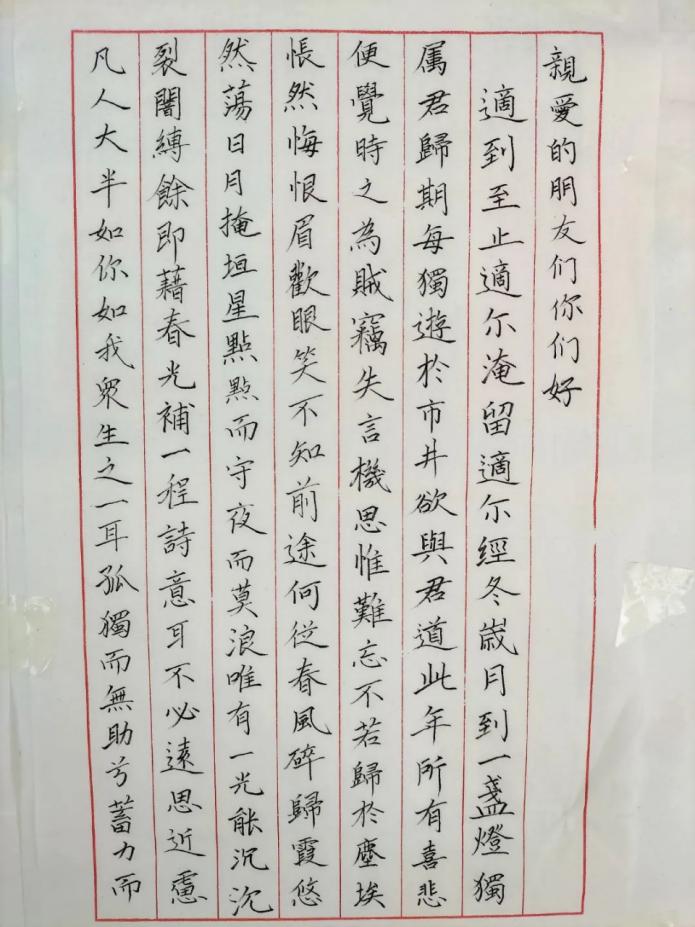 親愛的朋友们你们好
適到至止適尔淹留適尓經冬歲月到一盞燈獨
属君歸期每獨遊於市井欲與君道此年所有喜悲
便覺時之為賊竊失言機思惟難忘不若歸於塵埃
悵然悔恨眉歡眼笑不知前途何从春風碎歸霞悠
然蕩日月掩垣星點點而守夜而莫浪唯有一光能沉沉
裂闇縛餘即藉春光補一程詩意耳不必遠思近慮
凡人大半如你如我眾生之一耳孤獨而無助兮蓄力而